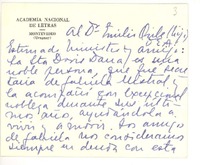 3
ACADEMIA NACIONAL
DE LETRAS
MONTEVIDEO
(Uruguay)
Al Dr. Emilio
Estimado Ministro y amigo:
la Srta Doris Dana, es una
noble persona, que fué
taria de Gabriela Mistral y
la acompañó con excepcional
nobleza durante sus últi-
mos años, ayudándola a
vivir y a morir. Los amigos
de Gabriela nos consideramos
siempre en deuda con esta